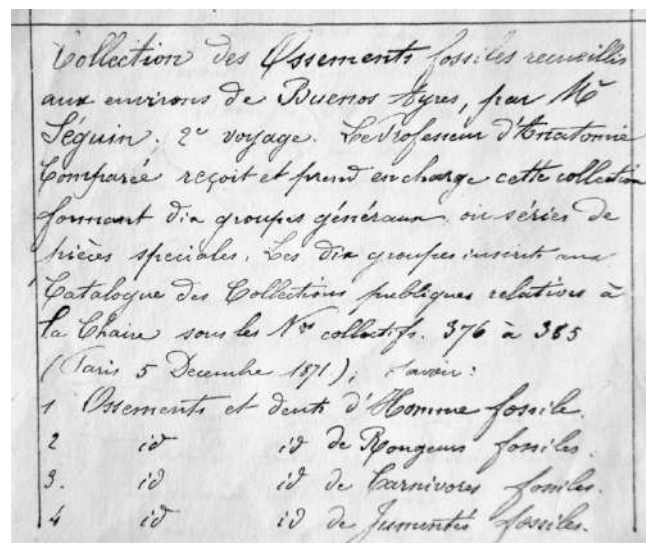 Collection des Ossements fossiles recueillis
aux environs de Buenos Ayres, par Mr
Séguin. 2e voyage. Le Professeur d'Anatomie
Comparée reçoit et prend en charge cette collection
formant dix groupes généraux ou séries de
pièces speciales. Les dix groupes inscrits aux
Catalogue des Collections publiques relatives à
la Chaire sous les Nos collectifs. 376 à 385
(Paris 5 Decembre 1871); savoir:
1 Ossements et dents d'Homme fossile.
2 id id de Rongeurs fossiles.
3. id id de Carnivores fossiles.
4 id id de Jumentés fossiles.